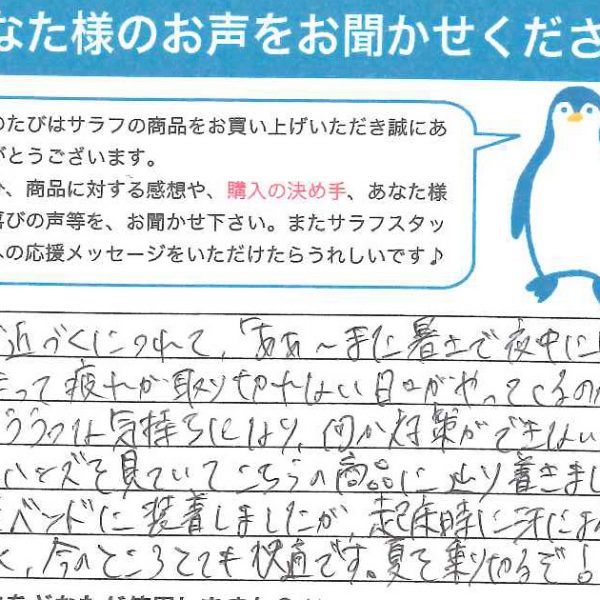 なた様のお声をお聞かせくださ
のたびはサラフの商品をお買い上げいただき誠にあ
がとうございます。
、商品に対する感想や、購入の決め手、あなた様
喜びの声等を、お聞かせ下さい。またサラフスタッ
への応援メッセージをいただけたらうれしいです♪
近づくにつれて、「ああ〜また暑さで夜中に
まって疲れが取り切れない日々がやってくるの
ううつな気持ちになり、何か対策ができない
ハンズを見ていてこちらの商品に辿り着きまし
ベッドに装着しましたが、起床時に汗にま
く、今のところとても快適です。夏を乗り切るぞ!